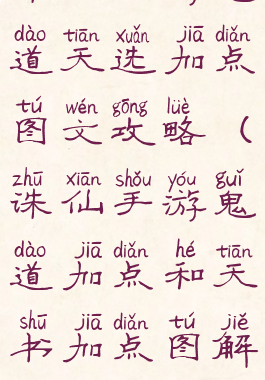 dào tiān xuǎn jiā diǎn
道天选加点
tú wén gōng lüè
图文攻略（
zhū xiān shǒu yóu guǐ
诛仙手游鬼
dào jiā diǎn hé tiān
道加点和天
shū jiā diǎn tú jiě
书加点图解